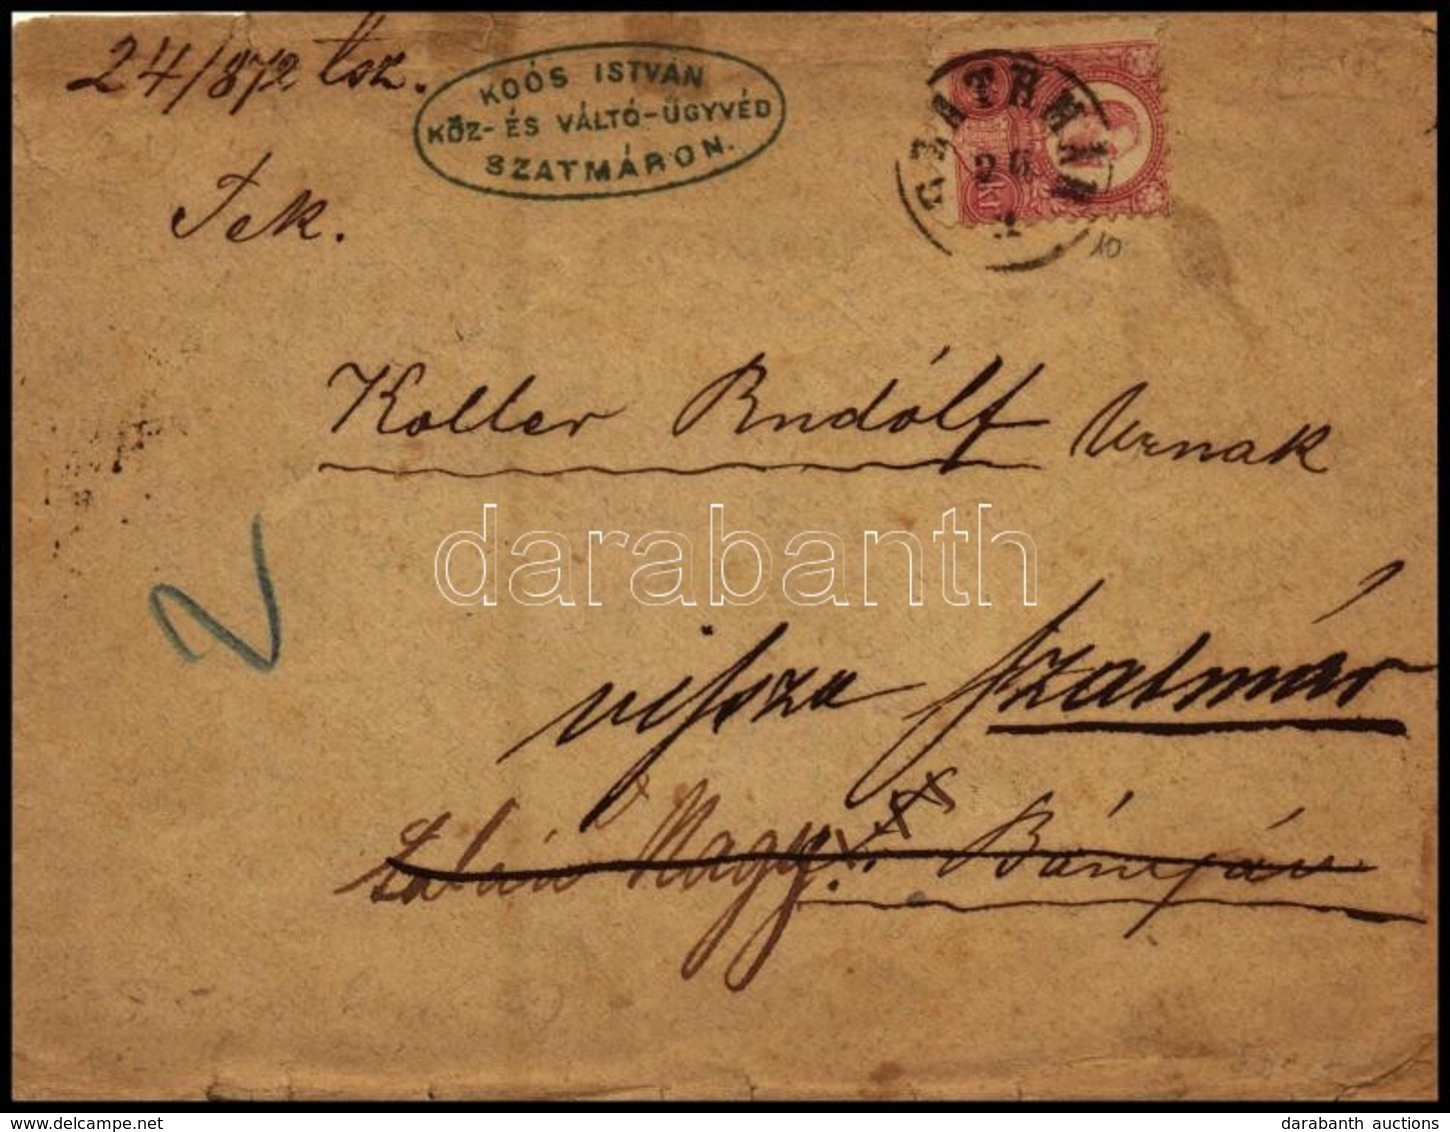 24/872 tsz.
KOÓS ISTVÁN
KÖZ- ÉS VÁLTÓ-ÜGYVÉD
SZATMÁRON.
SZATHMÁR
26
1
10
Tek.
Koller Rudólf Urnak
darabanth
vissza Szatmár
Nagy Bányán
darabanth auctions
www.delcampe.net